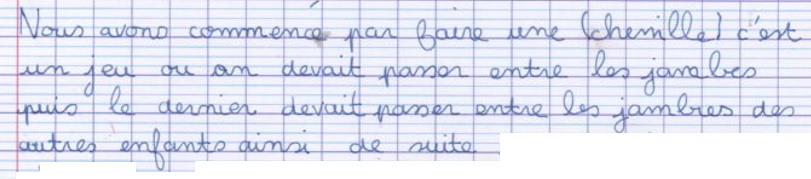 Nous avons commencé par faire une (chenille) c'est
un jeu ou on devait passer entre les jambes
puis le dernier devait passer entre les jambres des
autres enfants ainsi de suite